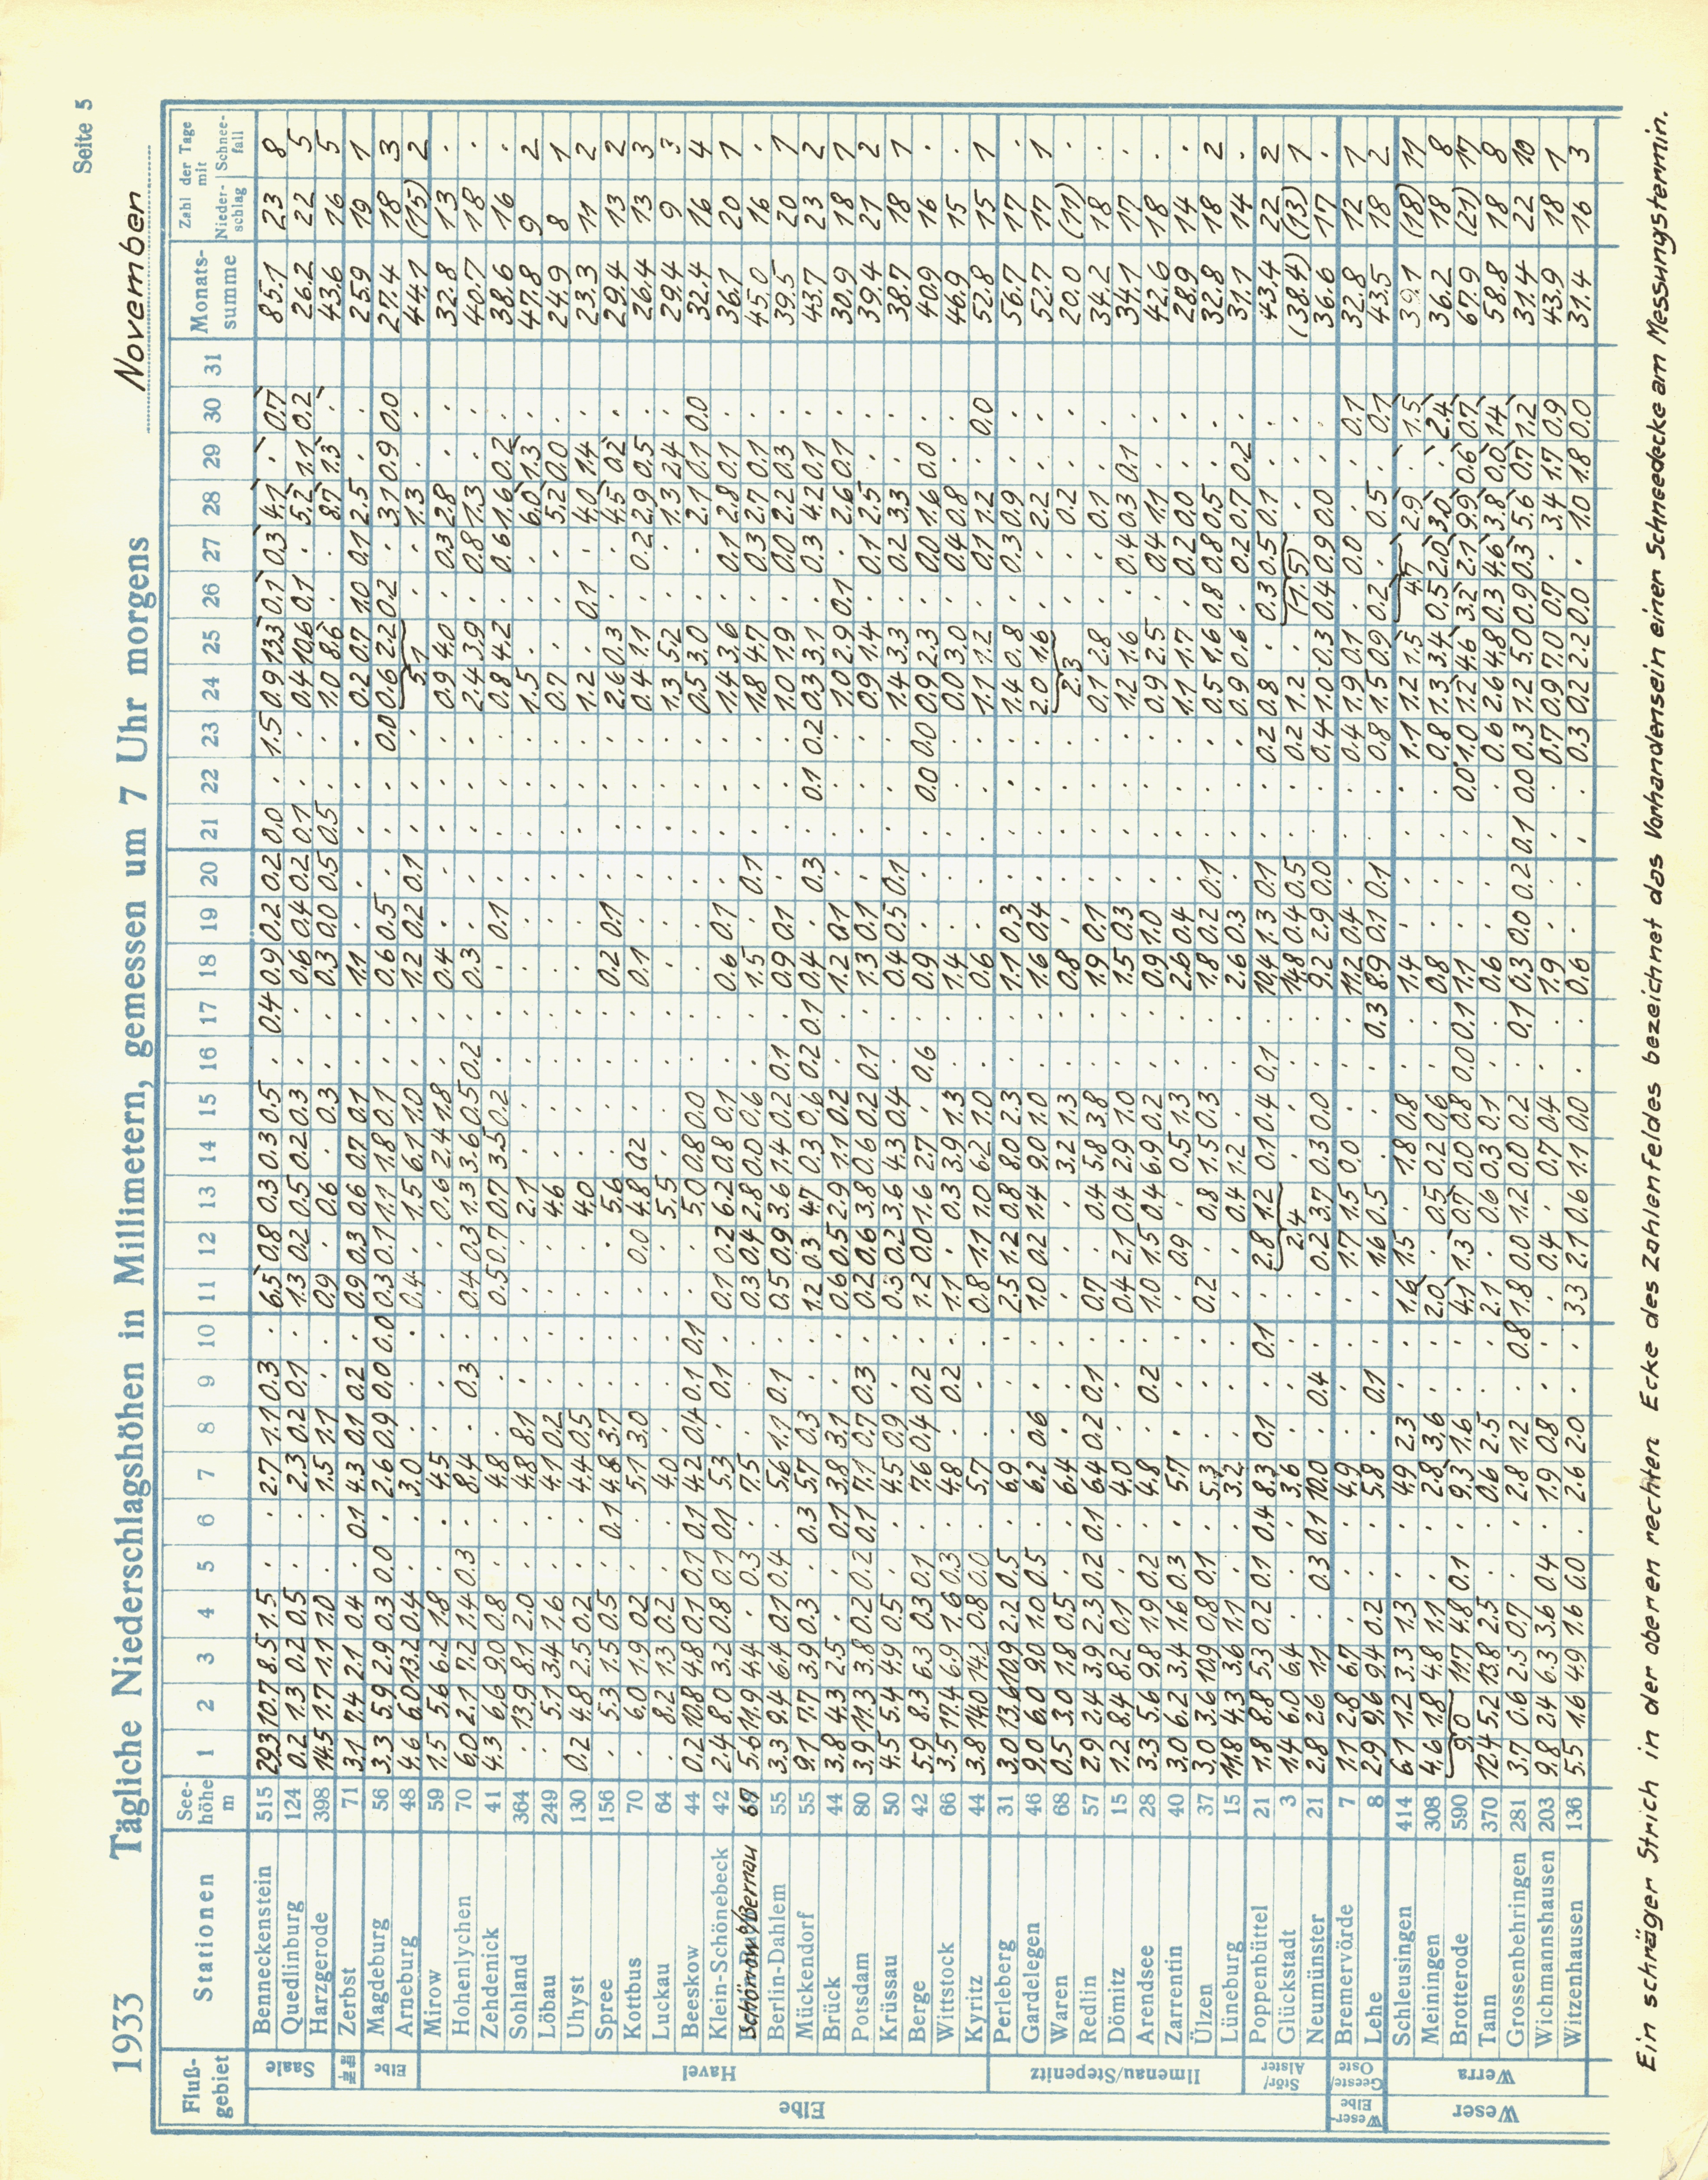 Seite 5
1933 Tägliche Niederschlagshöhen in Millimetern, gemessen um 7 Uhr morgens November
Fluß-gebiet Stationen See-höhe m 1 2 3 4 5 6 7 8 9 10 11 12 13 14 15 16 17 18 19 20 21 22 23 24 25 26 27 28 29 30 31 Monats-summe Zahl der Tage mit Nieder-schlag Schnee-fall
Elbe
Saale
Benneckenstein 515 29.3 10.7 8.5 1.5 . . 2.7 1.1 0.3 . 6.5 0.8 0.3 0.3 0.5 . 0.4 0.9 0.2 0.2 0.0 . 1.5 0.9 13.3 0.1 0.3 4.1 . 0.7 85.1 23 8
Quedlinburg 124 0.2 1.3 0.2 0.5 . . 2.3 0.2 0.1 . 1.3 0.2 0.5 0.2 0.3 . . 0.6 0.4 0.2 0.1 . . 0.4 10.6 0.1 . 5.2 1.1 0.2 26.2 22 5
Harzgerode 398 14.5 1.7 1.1 1.0 . . 1.5 1.1 . . 0.9 . 0.6 . 0.3 . . 0.3 0.0 0.5 0.5 . . 1.0 8.6 . . 8.7 1.3 . 43.6 16 5
Zerbst 71 3.1 7.4 2.1 0.4 . 0.1 4.3 0.1 0.2 . 0.9 0.3 0.6 0.7 0.1 . . 1.1 . . . . . 0.2 0.7 1.0 0.1 2.5 . . 25.9 19 1
Elbe
Magdeburg 56 3.3 5.9 2.9 0.3 0.0 . 2.6 0.9 0.0 0.0 0.3 0.1 1.1 1.8 0.1 . . 0.6 0.5 . . . 0.0 0.6 2.2 0.2 . 3.1 0.9 0.0 27.4 18 3
Arneburg 48 4.6 6.0 13.2 0.4 . . 3.0 . . . 0.4 . 1.5 6.1 1.0 . . 1.2 0.2 0.1 . . . 5.1 . . 1.3 . . 44.1 (15) 2
Havel
Mirow 59 1.5 5.6 6.2 1.8 . . 4.5 . . . . . 0.6 2.4 1.8 . . 0.4 . . . . . 0.9 4.0 . 0.3 2.8 . . 32.8 13 .
Hohenlychen 70 6.0 2.1 7.2 1.4 0.3 . 8.4 . 0.3 . 0.4 0.3 1.3 3.6 0.5 0.2 . 0.3 . . . . . 2.4 3.9 . 0.8 1.3 . . 40.7 18 .
Zehdenick 41 4.3 6.6 9.0 0.8 . . 4.8 . . . 0.5 0.7 0.7 3.5 0.2 . . . 0.1 . . . . 0.8 4.2 . 0.6 1.6 0.2 . 38.6 16 .
Sohland 364 . 13.9 8.1 2.0 . . 4.8 8.1 . . . . 2.1 . . . . . . . . . . 1.5 . . . 6.0 1.3 . 47.8 9 2
Löbau 249 . 5.1 3.4 1.6 . . 4.1 0.2 . . . . 4.6 . . . . . . . . . . 0.7 . . . 5.2 0.0 . 24.9 8 1
Uhyst 130 0.2 4.8 2.5 0.2 . . 4.4 0.5 . . . . 4.0 . . . . . . . . . . 1.2 . 0.1 . 4.0 1.4 . 23.3 11 2
Spree 156 . 5.3 1.5 0.5 . 0.1 4.8 3.7 . . . . 5.6 . . . . 0.2 0.1 . . . . 2.6 0.3 . . 4.5 0.2 . 29.4 13 2
Kottbus 70 . 6.0 1.9 0.2 . . 5.1 3.0 . . . 0.0 4.8 0.2 . . . 0.1 . . . . . 0.4 1.1 . 0.2 2.9 0.5 . 26.4 13 3
Luckau 64 . 8.2 1.3 0.2 . . 4.0 . . . . . 5.5 . . . . . . . . . . 1.3 5.2 . . 1.3 2.4 . 29.4 9 3
Beeskow 44 0.2 10.8 4.8 0.1 0.1 0.1 4.2 0.4 0.1 0.1 . . 5.0 0.8 0.0 . . . . . . . . 0.5 3.0 . . 2.1 0.1 0.0 32.4 16 4
Klein-Schönebeck 42 2.4 8.0 3.2 0.8 0.1 0.1 5.3 . 0.1 . 0.1 0.2 6.2 0.8 0.1 . . 0.6 0.1 . . . . 1.4 3.6 . 0.1 2.8 0.1 . 36.1 20 1
Schönow/Bernau 5.6 11.9 4.4 . 0.3 . 7.5 . . . 0.3 0.4 2.8 0.0 0.6 . . 1.5 . 0.1 . . . 1.8 4.7 . 0.3 2.7 0.1 . 45.0 16 .
Berlin-Dahlem 55 3.3 9.4 6.4 0.1 0.4 . 5.6 1.1 0.1 . 0.5 0.9 3.6 1.4 0.2 0.1 . 0.9 0.1 . . . . 1.0 1.9 . 0.0 2.2 0.3 . 39.5 20 1
Mückendorf 55 9.1 7.7 3.9 0.3 . 0.3 5.7 0.3 . . 1.2 0.3 4.7 0.3 0.6 0.2 0.1 0.4 . 0.3 . 0.1 0.2 0.3 3.1 . 0.3 4.2 0.1 . 43.7 23 2
Brück 44 3.8 4.3 2.5 . . 0.1 3.8 3.1 . . 0.6 0.5 2.9 1.1 0.2 . . 1.2 0.1 . . . . 1.0 2.9 0.1 . 2.6 0.1 . 30.9 18 1
Potsdam 80 3.9 11.3 3.8 0.2 0.2 0.1 7.1 0.7 0.3 . 0.2 0.6 3.8 0.6 0.2 0.1 . 1.3 0.1 . . . . 0.9 1.4 . 0.1 2.5 . . 39.4 21 2
Krüssau 50 4.5 5.4 4.9 0.5 . . 4.5 0.9 . . 0.3 0.2 3.6 4.3 0.4 . . 0.4 0.5 0.1 . . . 1.4 3.3 . 0.2 3.3 . . 38.7 18 1
Berge 42 5.9 8.3 6.3 0.3 0.1 . 7.6 0.4 0.2 . 1.2 0.0 1.6 2.7 . 0.6 . 0.9 . . . 0.0 0.0 0.9 2.3 . 0.0 1.6 0.0 . 40.9 16 .
Wittstock 66 3.5 17.4 6.9 1.6 0.3 . 4.8 . 0.2 . 1.1 . 0.3 3.9 1.3 . . 1.4 . . . . . 0.0 3.0 . 0.4 0.8 . . 46.9 15 .
Kyritz 44 3.8 14.0 14.2 0.8 0.0 . 5.7 . . . 0.8 1.1 1.0 6.2 1.0 . . 0.6 . . . . . 1.1 1.2 . 0.1 1.2 . 0.0 52.8 15 1
Ilmenau/Stepenitz
Perleberg 31 3.0 13.6 10.9 2.2 0.5 . 6.9 . . . 2.5 1.2 0.8 8.0 2.3 . . 1.1 0.3 . . . . 1.4 0.8 . 0.3 0.9 . . 56.7 17 .
Gardelegen 46 9.0 6.0 9.0 1.0 0.5 . 6.2 0.6 . . 1.0 0.2 1.4 9.0 1.0 . . 1.6 0.4 . . . . 2.0 1.6 . . 2.2 . . 52.7 17 1
Waren 68 0.5 3.0 1.8 0.5 . . 6.4 . . . . . . 3.2 1.3 . . 0.8 . . . . . 2.3 . . 0.2 . . 20.0 (11) .
Redlin 57 2.9 2.4 3.9 2.3 0.2 0.1 6.4 0.2 0.1 . 0.7 . 0.4 5.8 3.8 . . 1.9 0.1 . . . . 0.1 2.8 . . 0.1 . . 34.2 18 .
Dömitz 15 1.2 8.4 8.2 0.1 . . 4.0 . . . 0.4 2.1 0.4 2.9 1.0 . . 1.5 0.3 . . . . 1.2 1.6 . 0.4 0.3 0.1 . 34.1 17 .
Arendsee 28 3.3 5.6 9.8 1.9 0.2 . 4.8 . 0.2 . 1.0 1.5 0.4 6.9 0.2 . . 0.9 1.0 . . . . 0.9 2.5 . 0.4 1.1 . . 42.6 18 .
Zarrentin 40 3.0 6.2 3.4 1.6 0.3 . 5.7 . . . . 0.9 . 0.5 1.3 . . 2.6 0.4 . . . . 1.1 1.7 . 0.2 0.0 . . 28.9 14 .
Ülzen 37 3.0 3.6 10.9 0.8 0.1 . 5.3 . . . 0.2 . 0.8 1.5 0.3 . . 1.8 0.2 0.1 . . . 0.5 1.6 0.8 0.8 0.5 . . 32.8 18 2
Lüneburg 15 11.8 4.3 3.6 1.1 . . 3.2 . . . . . 0.4 1.2 . . . 2.6 0.3 . . . . 0.9 0.6 . 0.2 0.7 0.2 . 31.1 14 .
Stör/Alster
Poppenbüttel 21 1.8 8.8 5.3 0.2 0.1 0.4 8.3 0.1 . 0.1 . 2.8 1.2 0.1 0.4 0.1 . 10.4 1.3 0.1 . . 0.2 0.8 . 0.3 0.5 0.1 . . 43.4 22 2
Glückstadt 3 1.4 6.0 6.4 . . . 3.6 . . . . 2.4 . . . . 14.8 0.4 0.5 . . 0.2 1.2 . (1.5) . . . (38.4) (13) 1
Neumünster 21 2.8 2.6 1.1 . 0.3 0.1 10.0 . 0.4 . . 0.2 3.7 0.3 0.0 . . 9.2 2.9 0.0 . . 0.4 1.0 0.3 0.4 0.9 0.0 . . 36.6 17 .
Weser-Elbe
Geeste/Oste
Bremervörde 7 1.1 2.8 6.7 . . . 4.9 . . . . 1.7 1.5 0.0 . . . 11.2 0.4 . . . 0.4 1.9 0.1 . 0.0 . . 0.1 32.8 12 1
Lehe 8 2.9 9.6 9.4 0.2 . . 5.8 . 0.1 . . 1.6 0.5 . . . 0.3 8.9 0.1 0.1 . . 0.8 1.5 0.9 0.2 . 0.5 . 0.1 43.5 18 2
Weser
Werra
Schleusingen 414 6.1 1.2 3.3 1.3 . . 4.9 2.3 . . 1.6 1.5 . 1.8 0.8 . . 1.4 . . . . 1.1 1.2 1.5 4.5 2.9 . 1.5 39.1 (18) 11
Meiningen 308 4.6 1.8 4.8 1.1 . . 2.8 3.6 . . 2.0 . 0.5 0.2 0.6 . . 0.8 . . . . 0.8 1.3 3.4 0.5 2.0 3.0 . 2.4 36.2 18 8
Brotterode 590 9.0 11.7 4.8 0.1 . 9.3 1.6 . . 4.1 1.3 0.7 0.0 0.8 0.0 0.1 1.1 . . . 0.0 1.0 1.2 4.6 3.2 2.1 9.9 0.6 0.7 67.9 (21) 17
Tann 370 12.4 5.2 13.8 2.5 . . 0.6 2.5 . . 2.1 . 0.6 0.3 0.1 . . 0.6 . . . . 0.6 2.6 4.8 0.3 4.6 3.8 0.0 1.4 58.8 18 8
Grossenbehringen 281 3.7 0.6 2.5 0.7 . . 2.8 1.2 . 0.8 1.8 0.0 1.2 0.0 0.2 . 0.1 0.3 0.0 0.2 0.1 0.0 0.3 1.2 5.0 0.9 0.3 5.6 0.7 1.2 31.4 22 10
Wichmannshausen 203 9.8 2.4 6.3 3.6 0.4 . 1.9 0.8 . . . 0.4 . 0.7 0.4 . . 1.9 . . . . 0.7 0.9 7.0 0.7 . 3.4 1.7 0.9 43.9 18 1
Witzenhausen 136 5.5 1.6 4.9 1.6 0.0 . 2.6 2.0 . . 3.3 2.1 0.6 1.1 0.0 . . 0.6 . . . . 0.3 0.2 2.2 0.0 . 1.0 1.8 0.0 31.4 16 3
Ein schräger Strich in der oberen rechten Ecke des Zahlenfeldes bezeichnet das Vorhandensein einen Schneedecke am Messungstermin.